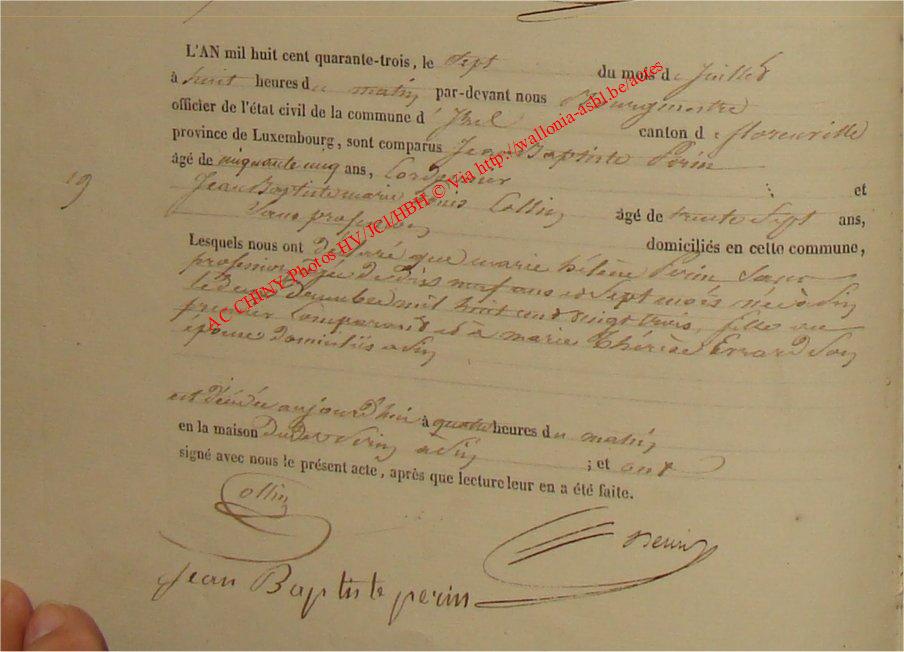 L'AN mil huit cent quarante-trois, le Sept du mois de Juillet
à huit heures du matin par-devant nous Bourgmestre
officier de l'état civil de la commune d'Izel canton de florenville
province de Luxembourg, sont comparus Jean Baptiste Perin
âgé de cinquante cinq ans, Cordonnier et
19
Jean Baptiste marie Louis Collin âgé de trente Sept ans,
Sans profession domiciliés en cette commune,
Lesquels nous ont déclaré que marie hélène Perin Sans
profession agée de dix neuf ans et Sept mois née à
le deux Décembre mil huit cent vingt trois, fille au
premier Comparant et à marie Thérèse Errard Son
épouse domiciliés à
est décédée aujourd'hui à quatre heures du matin
en la maison dudit Perin à ; et ont
signé avec nous le présent acte, après que lecture leur en a été faite.
Collin
Jean Baptiste perin
AC CHINY Photos HV/JCl/HBH © Via http://wallonia-asbl.be/actes